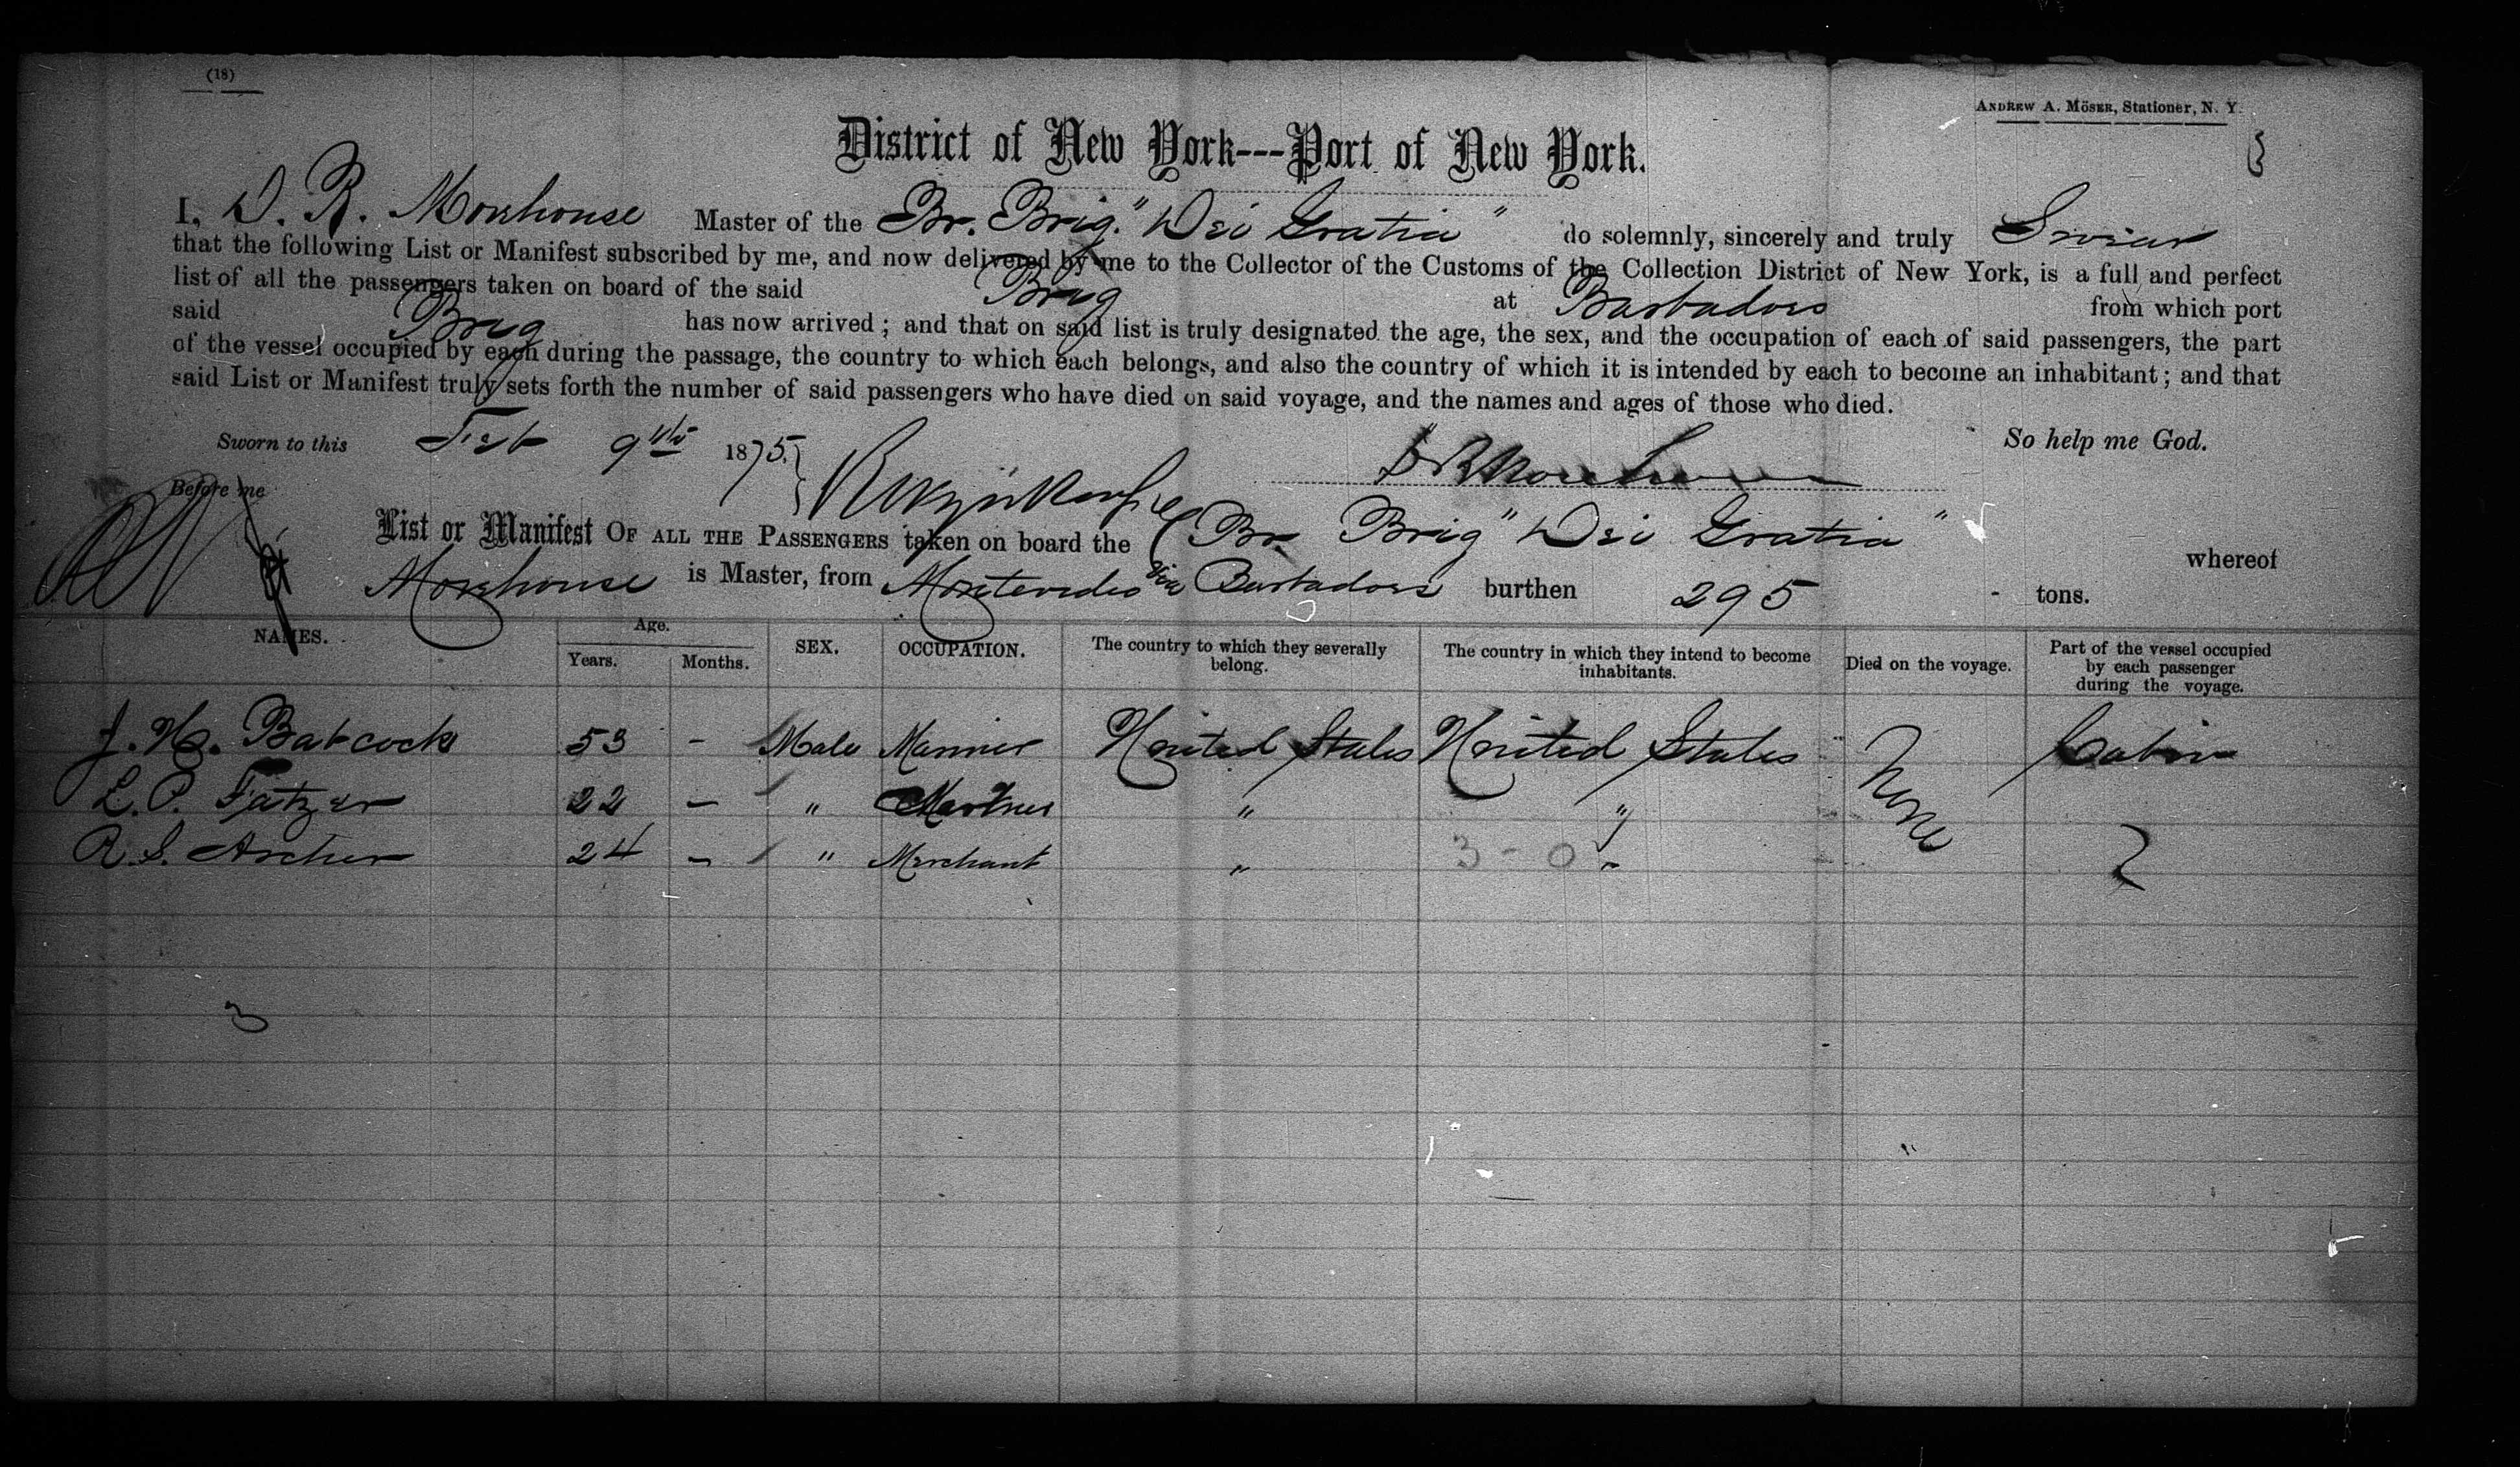 (18)
ANDREW A. MÖSER, Stationer, N. Y.
District of New York---Port of New York.
I, D. R. Morehouse Master of the Br. Brig. "Dei Gratia" do solemnly, sincerely and truly Swear
that the following List or Manifest subscribed by me, and now delivered by me to the Collector of the Customs of the Collection District of New York, is a full and perfect
list of all the passengers taken on board of the said Brig at Barbadoes from which port
said Brig has now arrived; and that on said list is truly designated the age, the sex, and the occupation of each of said passengers, the part
of the vessel occupied by each during the passage, the country to which each belongs, and also the country of which it is intended by each to become an inhabitant; and that
said List or Manifest truly sets forth the number of said passengers who have died on said voyage, and the names and ages of those who died.
Sworn to this Feb 9th 1875. So help me God.
Before me D R Morehouse
List or Manifest OF ALL THE PASSENGERS taken on board the Br. Brig "Dei Gratia" whereof
Morehouse is Master, from Montevideo via Barbadoes burthen 295 tons.
NAMES. Age. Years. Months. SEX. OCCUPATION. The country to which they severally belong. The country in which they intend to become inhabitants. Died on the voyage. Part of the vessel occupied by each passenger during the voyage.
J. H. Babcock 53 - Male Mariner United States United States None Cabin
L. P. Fatzer 22 - " Mariner " "
R. S. Archer 24 - " Merchant " 3 - 0 "
3